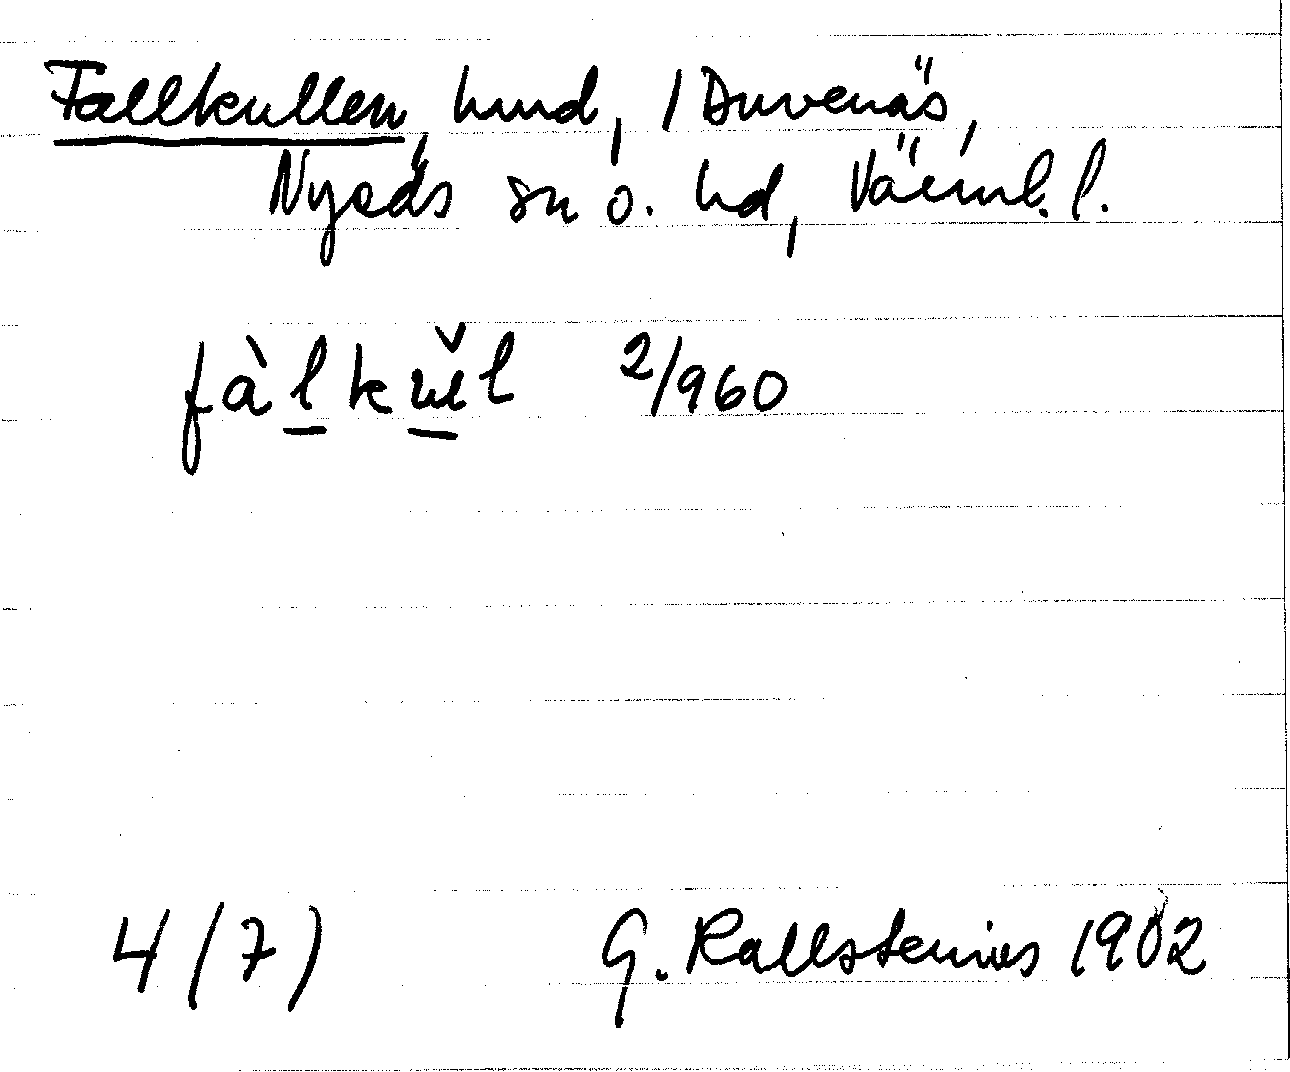 Fallkullen, hmd, / Duvenäs,
Nyeds sn o. hd, Värml. l.
fàlkŭl 2/960
4 (7) G. Kallstenius 1902